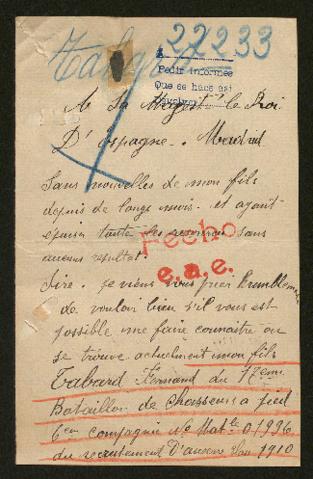 22233
Pedir informes
Que se hace así
A Sa Majesté le Roi
D'Espagne. Madrid
Sans nouvelles de mon fils
depuis de longs mois. et ayant
épuiser toute les ressources sans
aucuns resultat.
Fecho
e.a.e.
Sire. je viens vous prier humblement
de vouloir bien s'il vous est
possible me faire connaitre ou
se trouve actuelment mon fils
Tabard Fernand du 17eme
Bataillon de Chasseurs a pied
6em compagnie No Matle 01996
du recrutement D'auxerre 1910